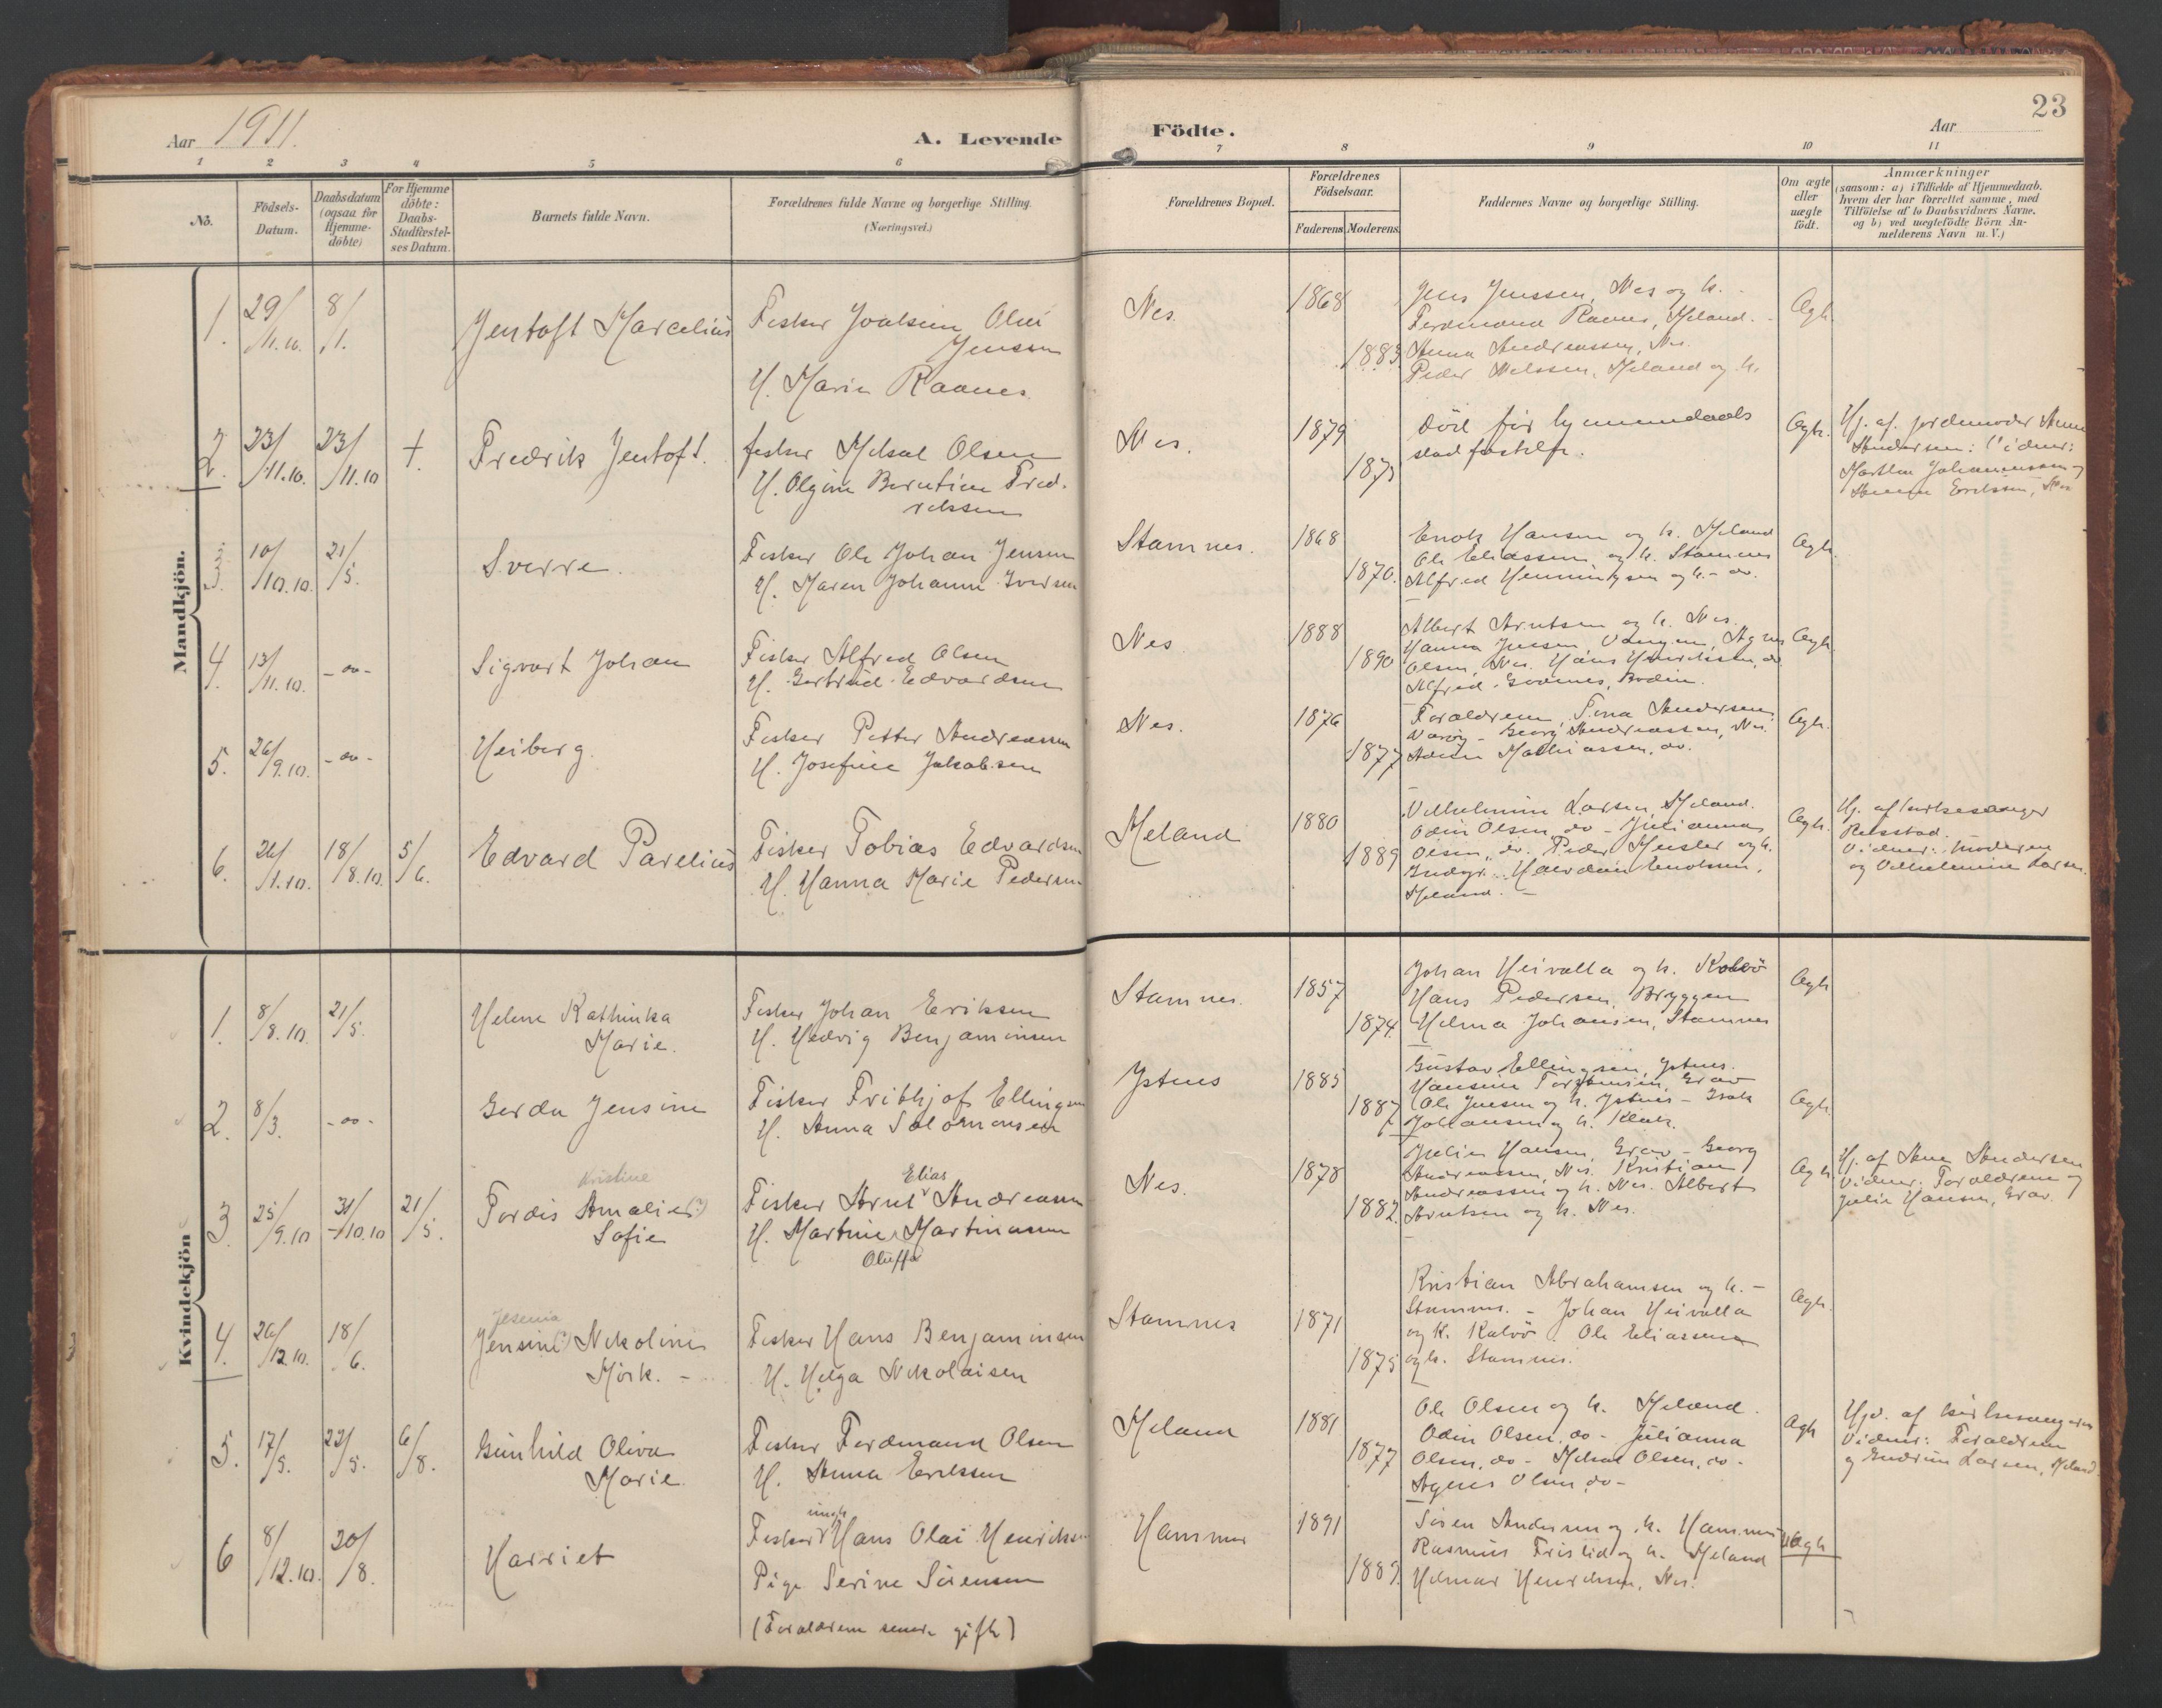 Aar 1911.
A. Levende
Födte.
Aar
23
1 2 3 4 5 6 7 8 9 10 11
No.
Födsels-
Datum.
Daabsdatum
(ogsaa for
Hjemme-
döbte)
For Hjemme
döbte:
Daabs-
Stadfæstel-
ses Datum.
Barnets fulde Navn.
Forældrenes fulde Navne og borgerlige Stilling.
(Næringsvei.)
Forældrenes Bopæl.
Forældrenes
Födselsaar.
Faderens
Moderens
Faddernes Navne og borgerlige Stilling.
Om ægte
eller
uægte
födt.
Anmærkninger
(saasom: a) i Tilfælde af Hjemmedaab,
hvem der har forrettet samme, med
Tilföielse af to Daabsvidners Navne,
og b) ved uægtefödte Börn An-
melderens Navn m. V.)
Mandkjön.
1. 29/11.10. 8/1. Jentoft Marcelius
Fisker Joakim Olai
Jensen
H. Marie Raanes
Nes. 1868 1883.
Jens Jenssen, Nes og h. -
Ferdinand Raanes, Meland. -
Anna Andreassen, Nes.
Peder Nelssen, Meland og h.
Ægh.
2. 23/11.10. 23/11.10 +. Fredrik Jentoft.
fisker Mikal Olsen
H. Olgine Berntine Fred-
riksen
Nes. 1879 1873
död för hjemmedaabs
stadfæstelse.
Ægh.
Hj. af jordemoder Anne
Andersen: Vidner:
Martha Johannessen og
Eriksen, Nes
3. 10/10.10. 21/5. Sverre.
Fisker Ole Johan Jensen
H. Maren Johanne Iversen
Stamnes. 1868 1870.
Enok Hansen og h. Meland
Ole Eliassen og h. Stamnes
Alfred Henningsen og h. - do.
Ægh.
4. 13/11.10. - do - Sigvart Johan
Fisker Alfred Olsen
H. Gertrud Edvardsen
Nes 1888 1890
Albert Arntsen og h. Nes.
Hanna Jensen, Vaagen, Agnes
Olsen, Nes. Hans Henriksen, do
Alfred Godönes, Bodin.
Ægh.
5. 26/9.10. - do - Heiberg.
Fisker Petter Andreassen
H. Josefine Jakobsen
Nes. 1876 1877
Forældrene, Tina Andersen
Værøy - Georg Andreassen, Nes.
Mathiassen, do.
Ægh.
6. 26/1.10. 18/8.10. 5/6. Edvard Parelius
Fisker Tobias Edvardsen
H. Hanna Marie Pedersen
Meland 1880 1889
Vilhelmine Larsen, Meland.
Odin Olsen, do - Julianna
Olsen, do. Peder Meisler og h.
Indyr. Halvdan Enoksen,
Meland. -
Ægh.
Hj. af kirkesanger
Reistad.
Vidner: Moderen
og Vilhelmine Larsen.
Kvindekjön
1. 8/8.10. 21/5. Helene Kathinka
Marie.
Fisker Johan Eriksen
H. Hedvig Benjaminsen
Stamnes. 1857 1874.
Johan Heivolla og h. Kalvö
Hans Pedersen, Bryggen
Hilma Johansen, Stamnes
Ægh
2. 8/3. - do - Gerda Jensine
Fisker Frithjof Ellingsen
H. Anna Salomonsen
Ystnes 1885 1887
Gustav Ellingsen, Ystnes.
Hansine Torstensen, Grav
Ole Jensen og h. Ystnes - Isak
Johansen og h.
Ægh
3. 25/9.10 31/10.10 21/5. Kristine
Tordis Amalie (?)
Sofie
Elias
Fisker Arnt Andreassen
H. Martine Martinussen
Oluffa
Nes. 1878 1882.
Julie Hansen, Grav - Georg
Andreassen, Nes. Kristian
Andreassen og h. Nes. Albert
Arntsen og h. Nes.
Ægh
Hj. af Ane Andersen
Vidner: Forældrene og
Julie Hansen, Grav.
4. 26/12.10. 18/6. Jesenia
Jensine (?) Nikoline
Mörk. -
Fisker Hans Benjaminsen
H. Helga Nikolaisen
Stamnes 1871 1875
Kristian Abrahamsen og h. -
Stamnes. - Johan Heivolla
og h. Kalvö. Ole Eliassen
og h. Stamnes.
Ægh.
5. 17/5. 22/5. 6/8. Gunhild Oliva
Marie.
Fisker Ferdinand Olsen
H. Anna Eriksen
Meland 1881 1877
Ole Olsen og h. Meland.
Odin Olsen, do - Julianna
Olsen, do - Mikal Olsen, do -
Agnes Olsen, do -
Ægh
Hjd. af kirkesangeren
Vidner: Forældrene
og Gudrun Larsen, Meland.
6 8/12.10. 20/8. Harriet
ungk
Fisker Hans Olai Henriksen
Pige Serine Sörensen
(Forældrene senere gift)
Hammer 1891 1889.
Sören Andersen og h. Hammer
Rasmus Fristid og h. Meland
Hilmar Henriksen, Nes.
Uægh